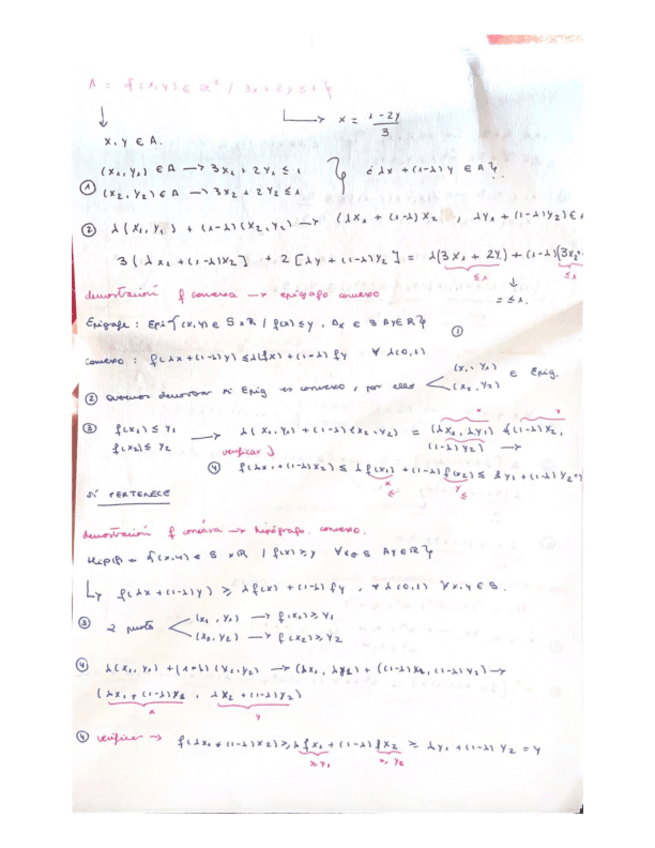 A = {(x,y) ∈ ℝ² / 3x + 2y ≤ 1}
↓ ⟶ x = (1 - 2y)/3
x, y ∈ A.
(x₁, y₁) ∈ A → 3x₁ + 2y₁ ≤ 1
① (x₂, y₂) ∈ A → 3x₂ + 2y₂ ≤ 1 } ¿ λx + (1-λ)y ∈ A?.
② λ(x₁, y₁) + (1-λ)(x₂, y₂) → (λx₁ + (1-λ)x₂, λy₁ + (1-λ)y₂) ∈ A
3(λx₁ + (1-λ)x₂] + 2[λy + (1-λ)y₂] = λ(3x₁ + 2y) + (1-λ)(3x₂+
≤1 ≤1
↓
= ≤ 1.
demostración f convexa → epígrafo convexo
Epígrafe : Epi {(x,y) ∈ S x ℝ / f(x) ≤ y, ∧x ∈ S ∧y∈ℝ} ①
convexo : f(λx + (1-λ)y) ≤ λf(x) + (1-λ) fy ∀ λ(0,1)
② queremos demostrar si Epig es convexo, por ello < (x₁, y₁) (x₂, y₂) ∈ Epig.
③ f(x₁) ≤ y₁ → λ(x₁, y₁) + (1-λ)(x₂, y₂) = (λx₁, λy₁) + ((1-λ)x₂,
f(x₂) ≤ y₂ (1-λ)y₂) →
verificar ↓
④ f(λx₁ + (1-λ)x₂) ≤ λ f(x₁) + (1-λ) f(x₂) ≤ λy₁ + (1-λ) y₂ = y
SÍ PERTENECE
demostración f cóncava → hipógrafo convexo.
Hip(f) = {(x,y) ∈ S x ℝ / f(x) ≥ y ∀x∈S ∧y∈ℝ}
↳ f(λx + (1-λ)y) ≥ λf(x) + (1-λ) fy, ∀ λ(0,1) ∀x,y ∈ S.
③ 2 puntos < (x₁, y₁) → f(x₁) ≥ y₁
(x₂, y₂) → f(x₂) ≥ y₂
④ λ(x₁, y₁) + (1-λ)(x₂, y₂) → (λx₁, λy₁) + ((1-λ)x₂, (1-λ)y₂) →
(λx₁ + (1-λ)x₂, λx₂ + (1-λ)y₂)
x y
④ verificar → f(λx₁ + (1-λ)x₂) ≥ λ fx₁ + (1-λ) fx₂ ≥ λy₁ + (1-λ) y₂ = y
≥ y₁ ≥ y₂